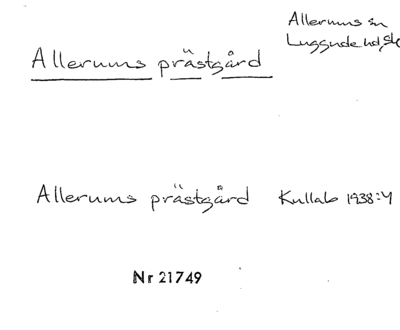 Allerums sn
Luggude hd, Sk
Allerums prästgård
Allerums prästgård Kullab 1938:4
Nr 21749